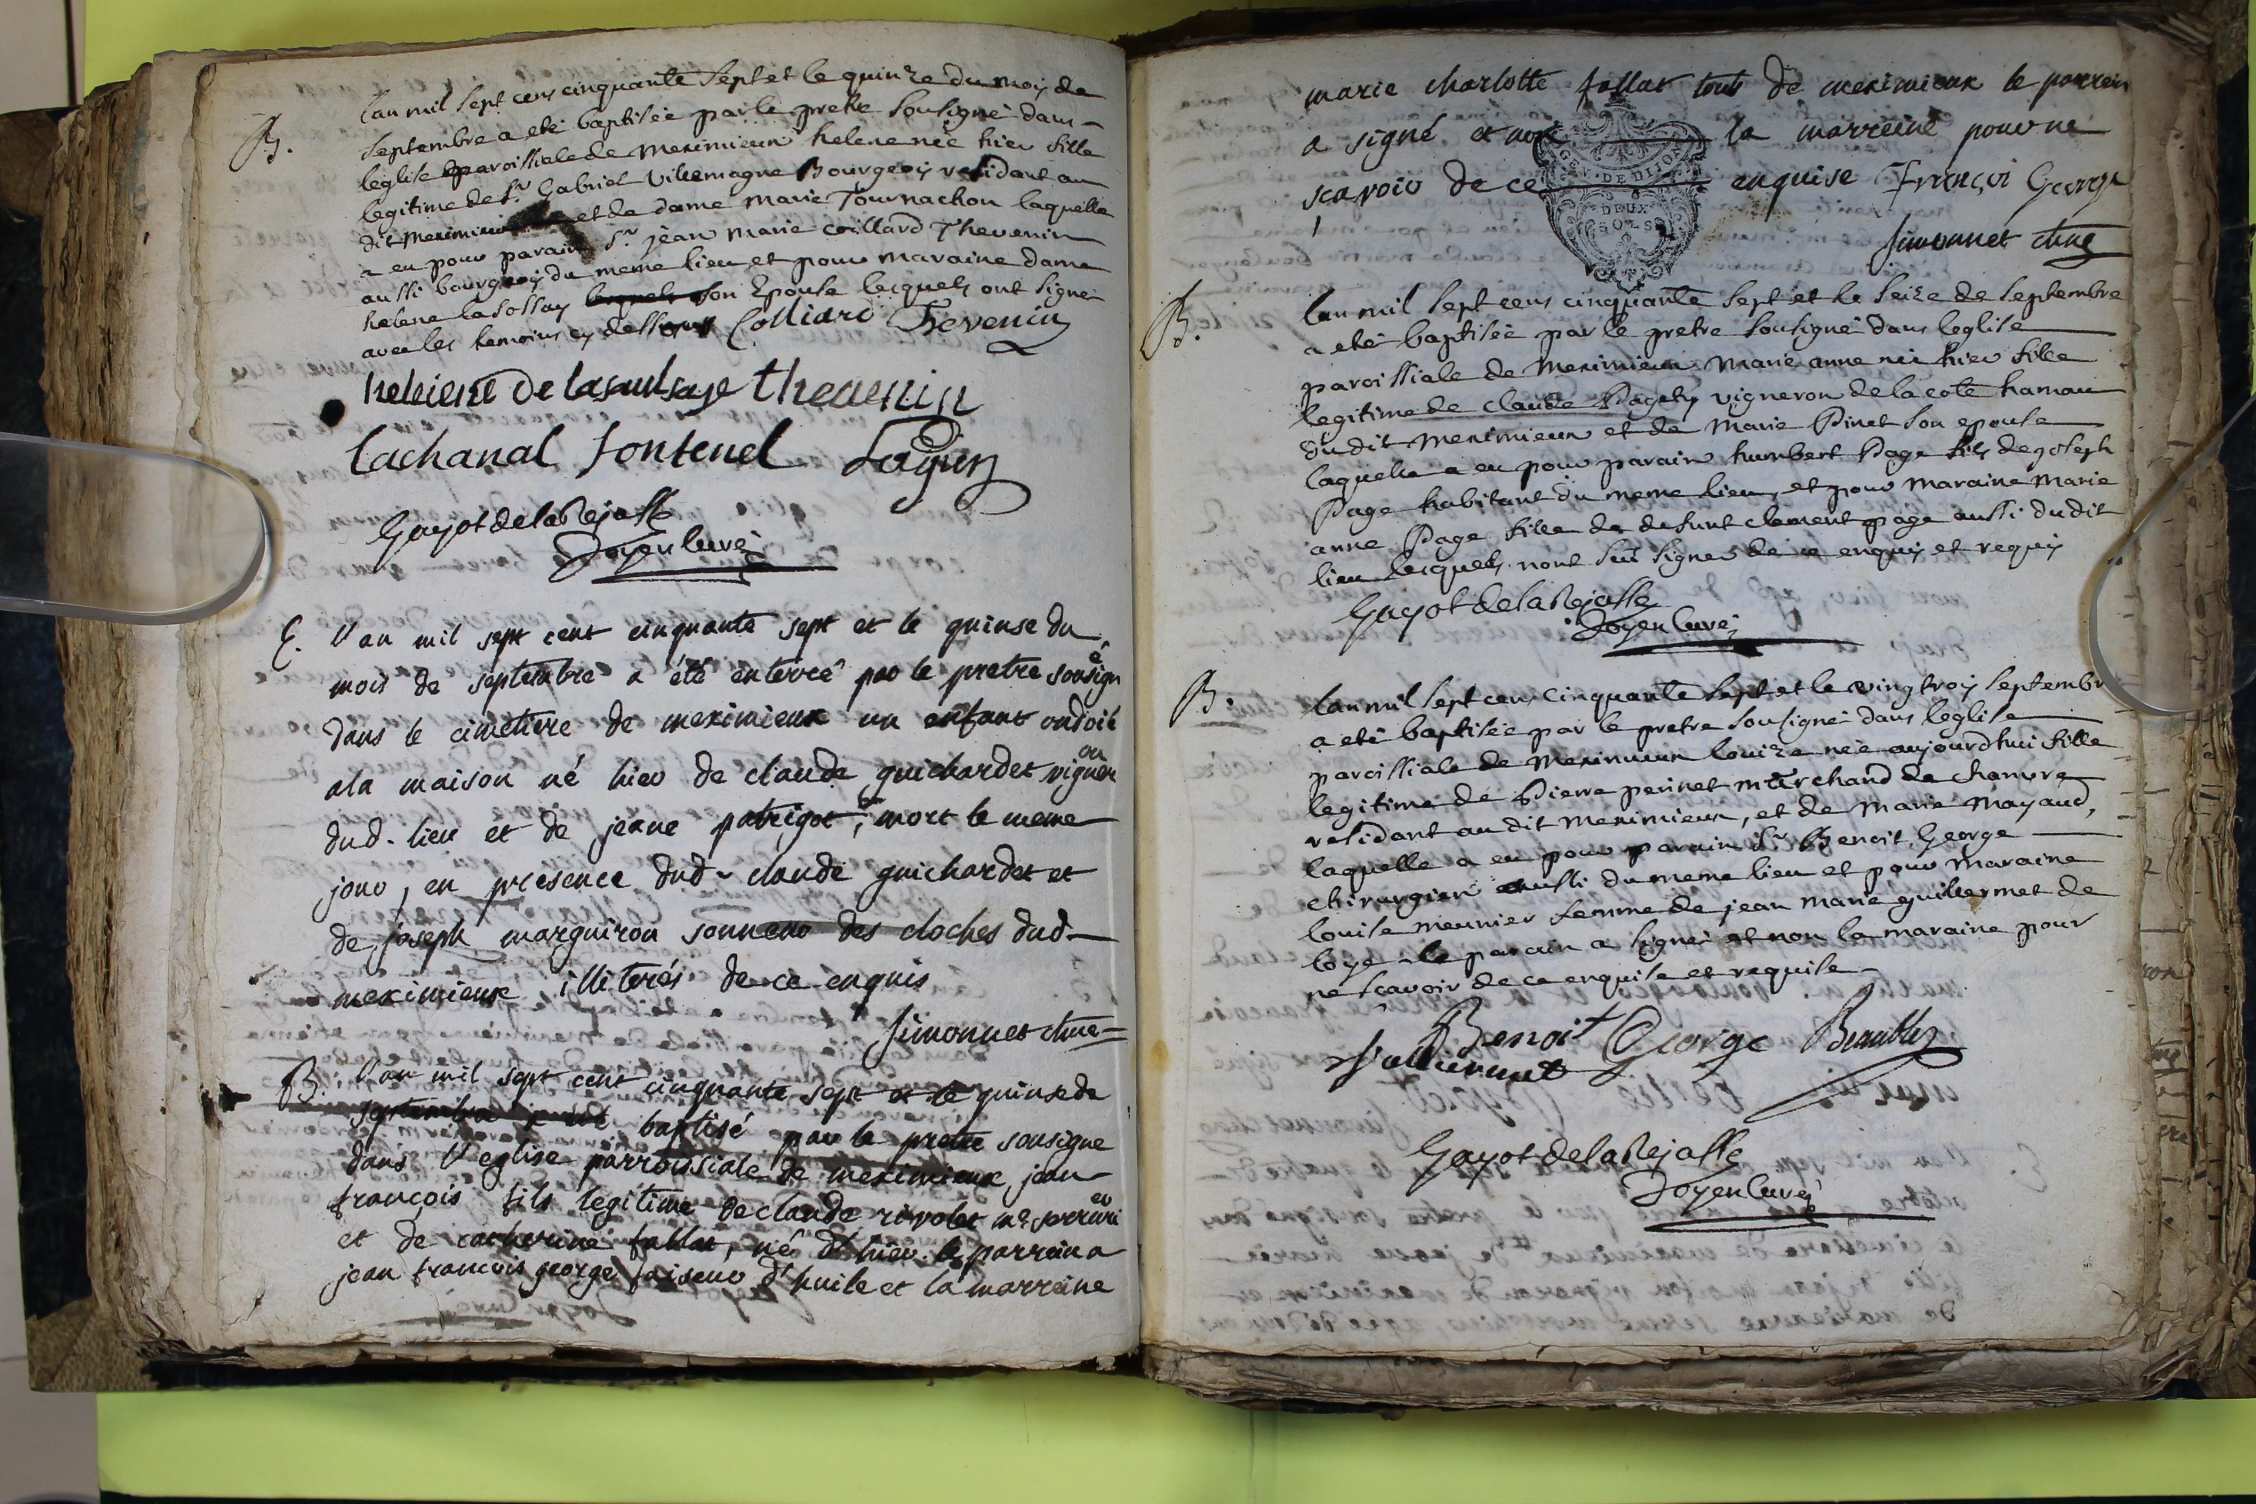 B.
Lan mil sept cens cinquante sept et le quinze du mois de
septembre a eté baptisée par le pretre sousigné dans
leglise paroissiale de meximieux helene née hier fille
legitime de Sr. Gabriel Villemagne Bourgeois residant au
dit meximieux et de dame marie Tournachon laquelle
a eu pour parain Sr jean marie coillard Thevenin
aussi bourgeois du meme lieu et pour maraine dame
helene lasossay lesquels son Epouse lesquels ont signé
avec les temoins cy dessous Colliard Thevenin
heleient De lasaulsaye thevenin
Lachanal fontenel
Gayot de la Rejasse
Doyen Curé
E. L'an mil sept cent cinquante sept et le quinse du
mois de septembre a été enterré par le pretre sousigné
dans le cimetiere de meximieux un enfant ondoié
a la maison né hier de claude guichardet vigneron
dud. lieu et de jeane patrigot, mort le meme
jour, en presence dud. claude guichardet et
de joseph marguiron sonneur des cloches dud.
meximieux illiterés de ce enquis
Simonnet
B. L'an mil sept cent cinquante sept et le quinse de
septembre a été baptisé par le pretre sousigne
dans l'eglise parroissiale de meximieux jean
françois fils legitime de claude rivolet me perruquier
et de catherine fallat, né d'hier. le parrein a
jean francois george faiseur d'huile et la marreine
marie charlotte fallat touts de meximieux le parrein
a signé et non la marreine pour ne
scavoir de ce enquise françoi George
Simonnet
GEN. DE DIJON
DEUX
SOLS
B.
Lan mil sept cens cinquante sept et le seize de septembre
a eté baptisée par le pretre sousigné dans leglise
paroissiale de meximieux marie anne née hier fille
legitime de claude Pagety vigneron de la cote hamau
du dit meximieux et de marie Pinet son epouse
laquelle a eu pour parain humbert Page fils de joseph
Page habitant du meme lieu, et pour maraine marie
anne Page fille de defunt clement page aussi du dit
lieu lesquels nont sçu signer de ce enquis et requis
Gayot de la Rejasse
Doyen Curé
B.
Lan mil sept cens cinquante sept et le vingtrois septembre
a eté baptisée par le pretre sousigné dans leglise
paroissiale de meximieux louize née aujourdhui fille
legitime de Pierre perinet marchand de chanvre
residant au dit meximieux, et de marie mayaud,
laquelle a eu pour parain Sr Benoit George
chirurgien aussi du meme lieu et pour maraine
louise meunier femme de jean marie guillermet de
loye le parain a signé et non la maraine pour
ne scavoir de ce enquise et requise
Benoit George
Gayot de la Rejasse
Doyen Curé